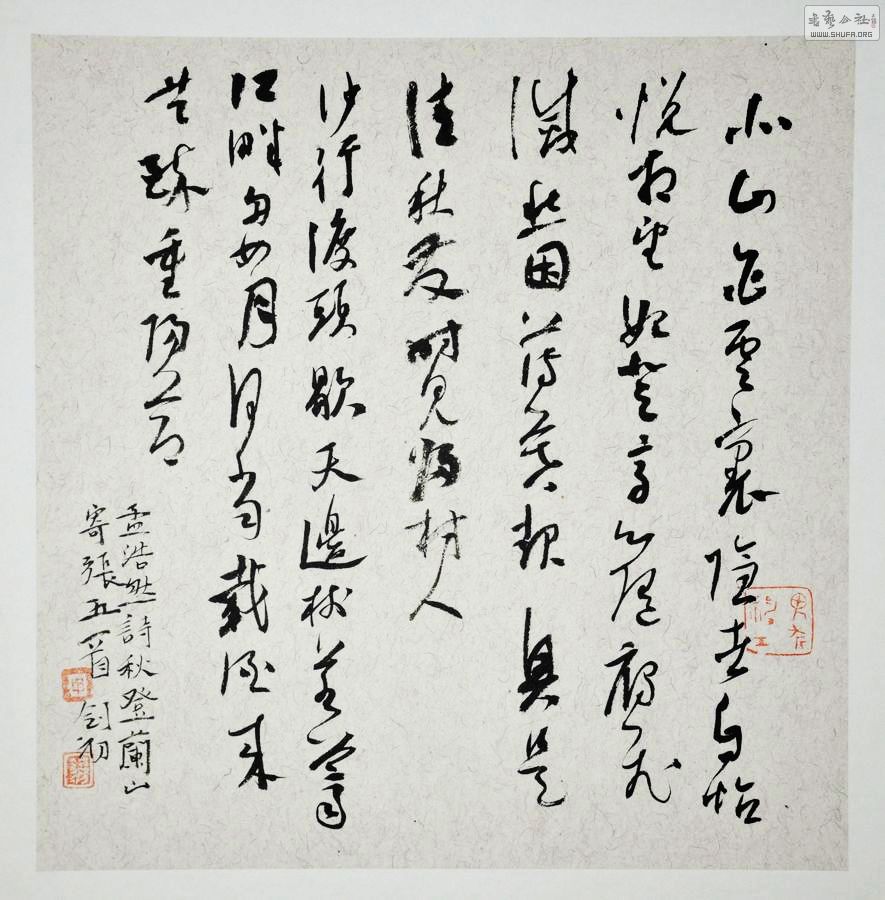 北山白雲裏隱者自怡
悅相望始登高心隨雁飛
滅愁因薄暮起興是
清秋發時見歸村人
沙行渡頭歇天邊樹若薺
江畔舟如月何當載酒來
共醉重陽節
孟浩然詩秋登蘭山
寄張五一首 劍初
WWW.SHUFA.ORG